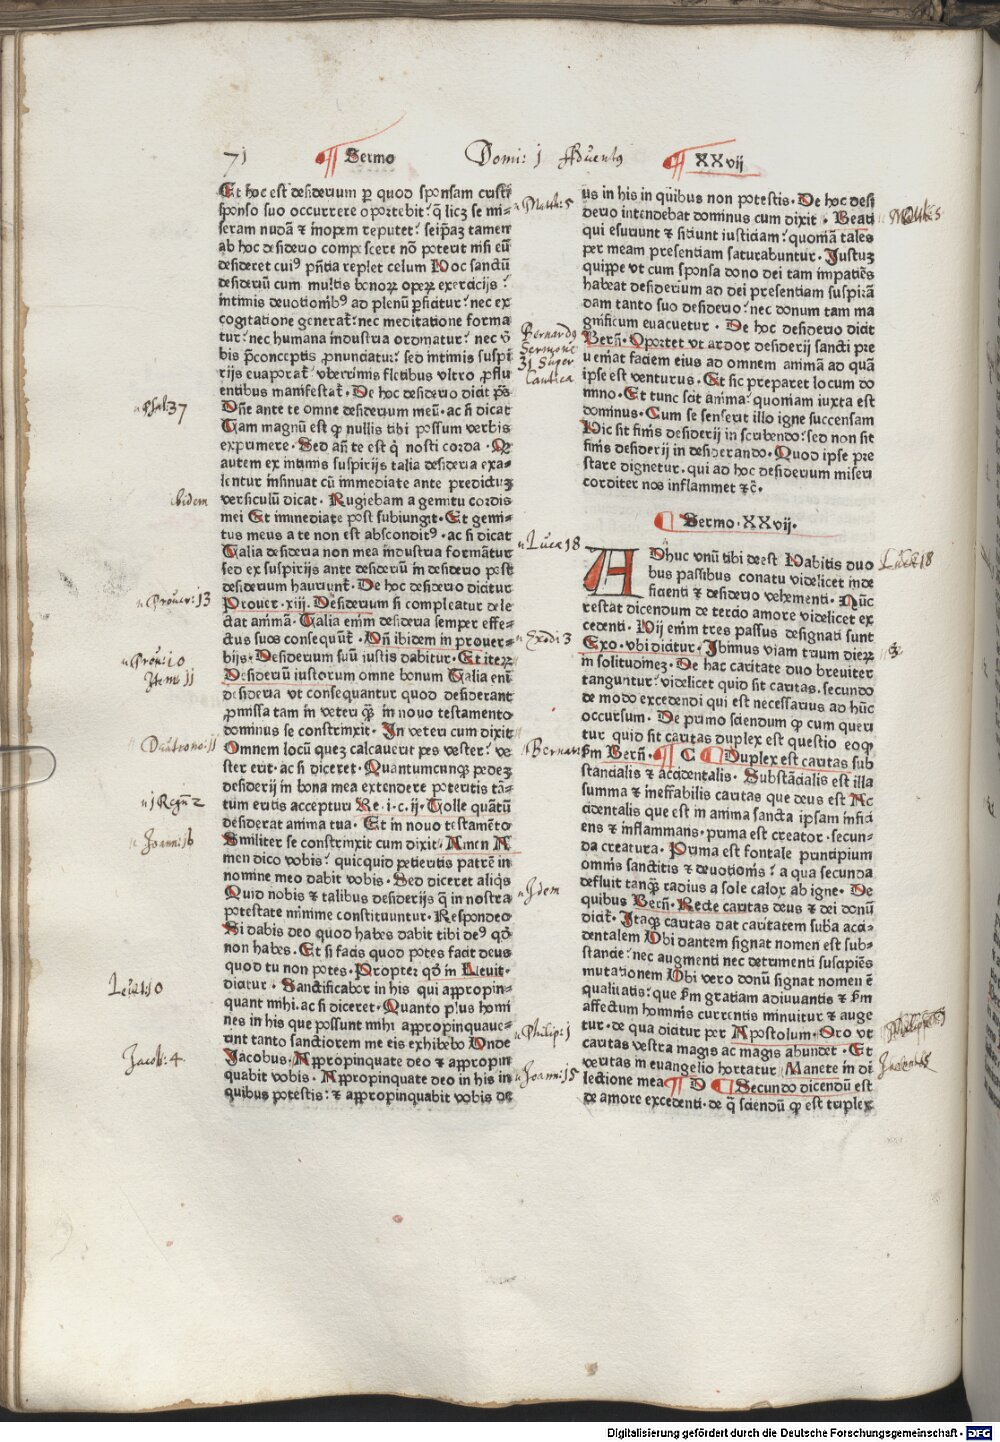 71 Sermo Domi: j Aduentus XXvij
Et hoc est desiderium per quod sponsam cristi
sponso suo occurrere oportebit? q̄ licz se mi=
seram nudā & inopem reputet? seipsaz tamen
ab hoc desiderio compescere nō poterit nisi eū
desideret cuiꝰ pn̄tia replet celum Hoc sanctū
desideriū cum multis bonoꝝ opeꝝ exercicijs?
intimis deuotionibꝰ ad plenū ꝑficitur? nec ex
cogitatione generat̄? nec meditatione forma
tur? nec humana industria ordinatur? nec ꝟ
bis p̄conceptis ꝓnunciatur? sed intimis suspi
rijs euaporat̄? vberrimis fletibus vltro ꝓflu
entibus manifestat̄. De hoc desiderio dicit ps̄
Dn̄e ante te omne desiderium meū. ac si dicat
Tam magnū est ꝙ nullis tibi possum verbis
exprimere. Sed an̄ te est q̄ nosti corda. Q̄
autem ex intimis suspirijs talia desideria exa=
lentur insinuat cū immediate ante predictuz
versiculū dicat. Rugiebam a gemitu cordis
mei Et immediate post subiungit. Et gemi=
tus meus a te non est absconditꝰ. ac si dicat
Talia desideria non mea industria formātur
sed ex suspirijs ante desideriū in desiderio post
desiderium hauriunt̄. De hoc desiderio dicitur
Prouer. xiij. Desiderium si compleatur dele
ctat animā. Talia enim desideria semper effe=
ctus suos consequūt̄. Vn̄ ibidem in prouer=
bijs. Desiderium suū iustis dabitur. Et iteꝝ
Desideriū iustorum omne bonum Talia eni
desideria vt consequantur quod desiderant
ꝓmissa tam in veteri q̄ꝫ in nouo testamento
dominus se constrinxit. In veteri cum dixit
Omnem locū quez calcauerit pes vester? ve
ster erit. ac si diceret. Quantumcunqꝫ pedez
desiderij in bona mea extendere poteritis tā=
tum eritis accepturi Re. i. c. ij. Tolle quātū
desiderat anima tua. Et in nouo testamēto
Similiter se constrinxit cum dixit. Amen A
men dico vobis? quicquid petieritis patrē in
nomine meo dabit vobis. Sed diceret aliqs
Quid nobis & talibus desiderijs q̄ in nostra
potestate minime constituuntur. Respondeo
Si dabis deo quod habes dabit tibi deꝰ qd̄
non habes. Et si facis quod potes facit deus
quod tu non potes. Propter qd̄ in Leuit.
dicitur. Sanctificabor in his qui appropin=
quant mihi. ac si diceret. Quanto plus homi
nes in his que possunt mihi appropinquaue=
rint tanto sanctiorem me eis exhibebo Unde
Jacobus. Appropinquate deo & appropin
quabit vobis. Appropinquate deo in his in
quibus potestis? & appropinquabit vobis de
us in his in quibus non potestis. De hoc desi
derio intendebat dominus cum dixit. Beati
qui esuriunt & sitiunt iusticiam? quoniā tales
per meam presentiam saturabuntur. Justuz
quippe vt cum sponsa dono dei tam impatiēs
habeat desiderium ad dei presentiam suspirā
dam tanto suo desiderio? nec donum tam ma
gnificum euacuetur. De hoc desiderio dicit
Bern̄. Oportet vt ardor desiderij sancti pre
ueniat faciem eius ad omnem animā ad quā
ipse est venturus. Et sic preparet locum do
mino. Et tunc scit anima? quoniam iuxta est
dominus. Cum se senserit illo igne succensam
Hic sit finis desiderij in scribendo? sed non sit
finis desiderij in desiderando. Quod ipse pre
stare dignetur. qui ad hoc desiderium miseri
corditer nos inflammet &c̄.
Sermo. XXvij.
ADhuc vnū tibi deest Habitis duo
bus passibus conatu videlicet inde
ficienti & desiderio vehementi. Nūc
restat dicendum de tercio amore videlicet ex
cedenti. Hij enim tres passus designati sunt
Exo. vbi dicitur. Ibimus viam trium dieꝝ
in solitudinez. De hac caritate duo breuiter
tanguntur? videlicet quid sit caritas. secundo
de modo excedendi qui est necessarius ad hūc
occursum. De primo sciendum ꝙ cum queri
tur quid sit caritas duplex est questio eoꝙ
ẜm Bern̄. C Duplex est caritas sub
stancialis & accidentalis. Substācialis est illa
summa & ineffabilis caritas que deus est Ac
cidentalis que est in anima sancta ipsam infici
ens & inflammans. prima est creator. secun=
da creatura. Prima est fontale principium
omnis sanctitis & deuotionis? a qua secunda
defluit tanq̄ꝫ radius a sole calor ab igne. De
quibus Bern̄. Recte caritas deus & dei donū
dicit̄. Itaqꝫ caritas dat caritatem subā acci=
dentalem Ubi dantem signat nomen est sub=
stancie? nec augmenti nec detrimenti suscipiēs
mutationem Ubi vero donū signat nomen ē
qualitatis? que ẜm gratiam adiuuantis & ẜm
affectum hominis currentis minuitur & auge
tur. de qua dicitur per Apostolum. Oro vt
caritas vestra magis ac magis abundet. Et
veritas in euangelio hortatur Manete in di
lectione mea D Secundo dicendū est
de amore excedenti. de q̄ sciendū ꝙ est triplex
Psal: 37
ibidem
Prouer: 13
Prou: 10
Item 11
Deutrono: 11
1 Regū 2
Joann: 16
Leuit: 10
Jacob: 4
Math: 5
Bernardꝰ
Sermone
31 Super
Cantica
Luce 18
Exodi 3
Bernar:
Idem
Philip: 1
Joann: 15
Math: 5
Luce 18
3
Digitalisierung gefördert durch die Deutsche Forschungsgemeinschaft - DFG